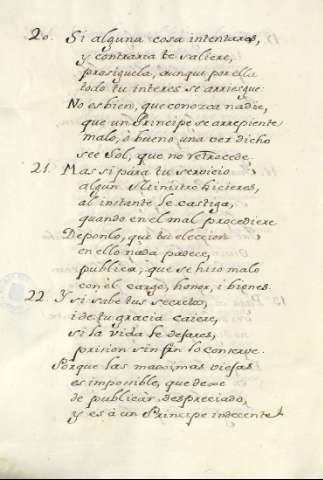 20. Si alguna cosa intentares,
y contraria te saliere,
prosiguela, aunque por ella
todo tu interes se arriesgue.
No es bien, que conozca nadie,
que un Principe se arrepiente
malo, ò bueno una vez dicho
see Sol, que no retrocede.
21. Mas si para tu servicio
algun Ministro hicieres,
al instante le castiga,
quando en el mal procediere
Deponlo, que tu eleccion
en ello nada padece,
publica, que se hizo malo
con el cargo, honor, i bienes.
22. Y si sabe tus secretos,
i de tu gracia caiere,
si la vida le dejares,
prision sin fin lo conserve.
Porque las maximas viejas
es imposible, que deje
de publicar despreciado,
y es à un Principe indecente